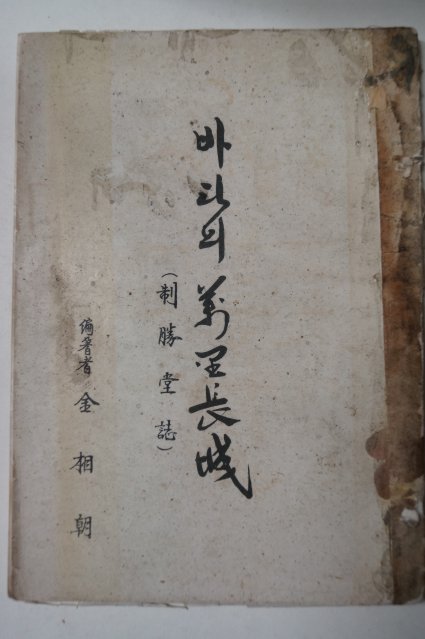 바다의 萬里長城
(制勝堂誌)
編著者 金相朝